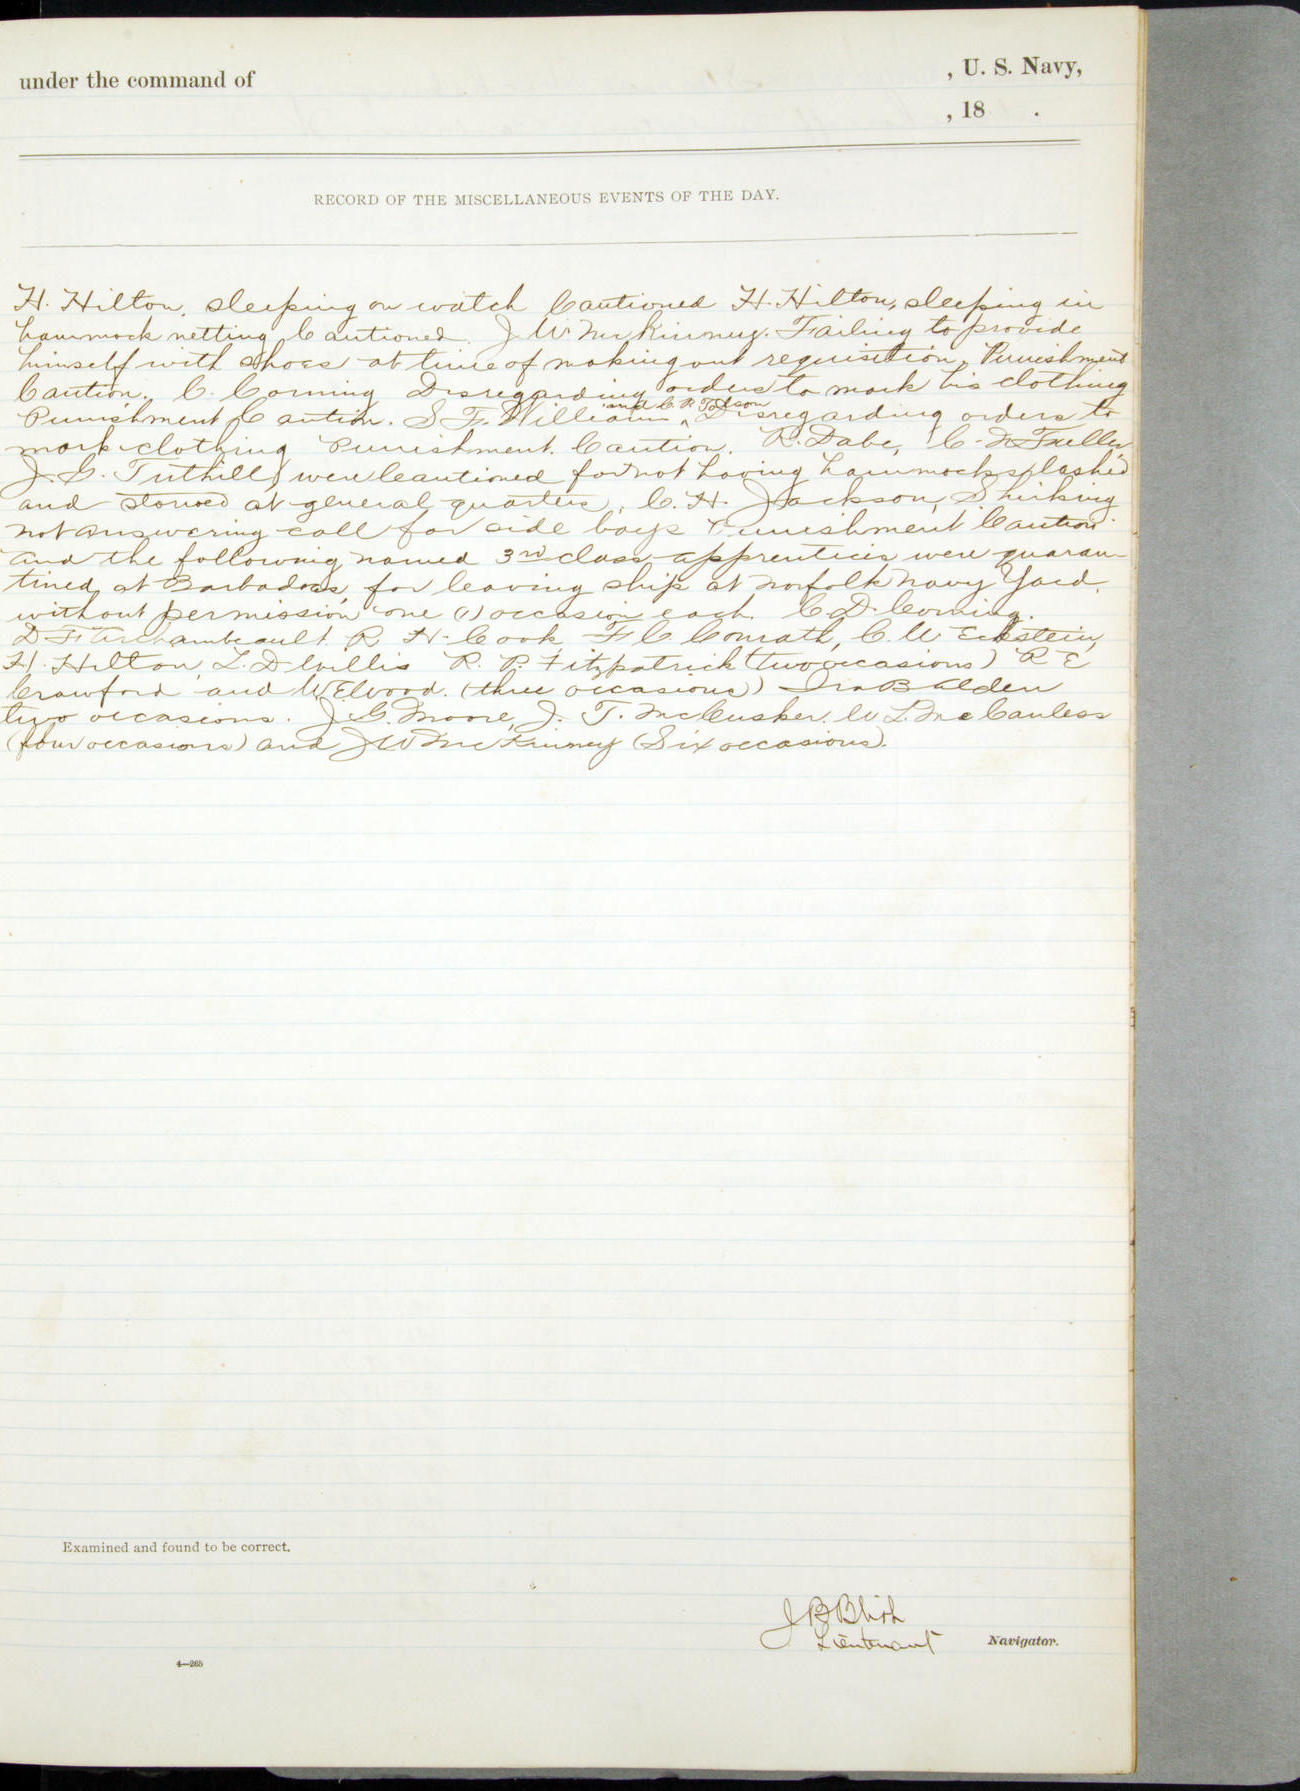 under the command of , U. S. Navy,
, 18 .
RECORD OF THE MISCELLANEOUS EVENTS OF THE DAY.
H. Hilton, sleeping on watch Cautioned H. Hilton, sleeping in
hammock netting Cautioned. J. W. McKinney. Failing to provide
himself with shoes at time of making out requisition. Punishment
Caution. C. Corning Disregarding orders to mark his clothing
Punishment Caution. S. F. William and C. P. Tolson Disregarding orders to
mark clothing Punishment. Caution. R. Dabe, C. F. Fuller,
J. G. Tuthill were Cautioned for not having hammocks lashed
and stowed at general quarters, C. H. Jackson, Shirking
not answering call for side boys Punishment Caution.
and the following named 3rd class apprentices were quaran-
tined at Barbados, for leaving ship at Norfolk Navy Yard.
without permission one (1) occasion each. C. D. Corning.
D F Archambeault. R. H. Cook F C Conrath, C. W Eckstein,
H. Hilton, L. D Willis R. P. Fitzpatrick (two occasions) R E
Crawford and W. E. Wood. (three occasions) Ira B Alden
two occasions. J. G. Moore, J. T. McCusker. W L. McCauless
(four occasions) and J W McKinney (Six occasions).
Examined and found to be correct.
J B Blish
Lieutenant Navigator.
4—265